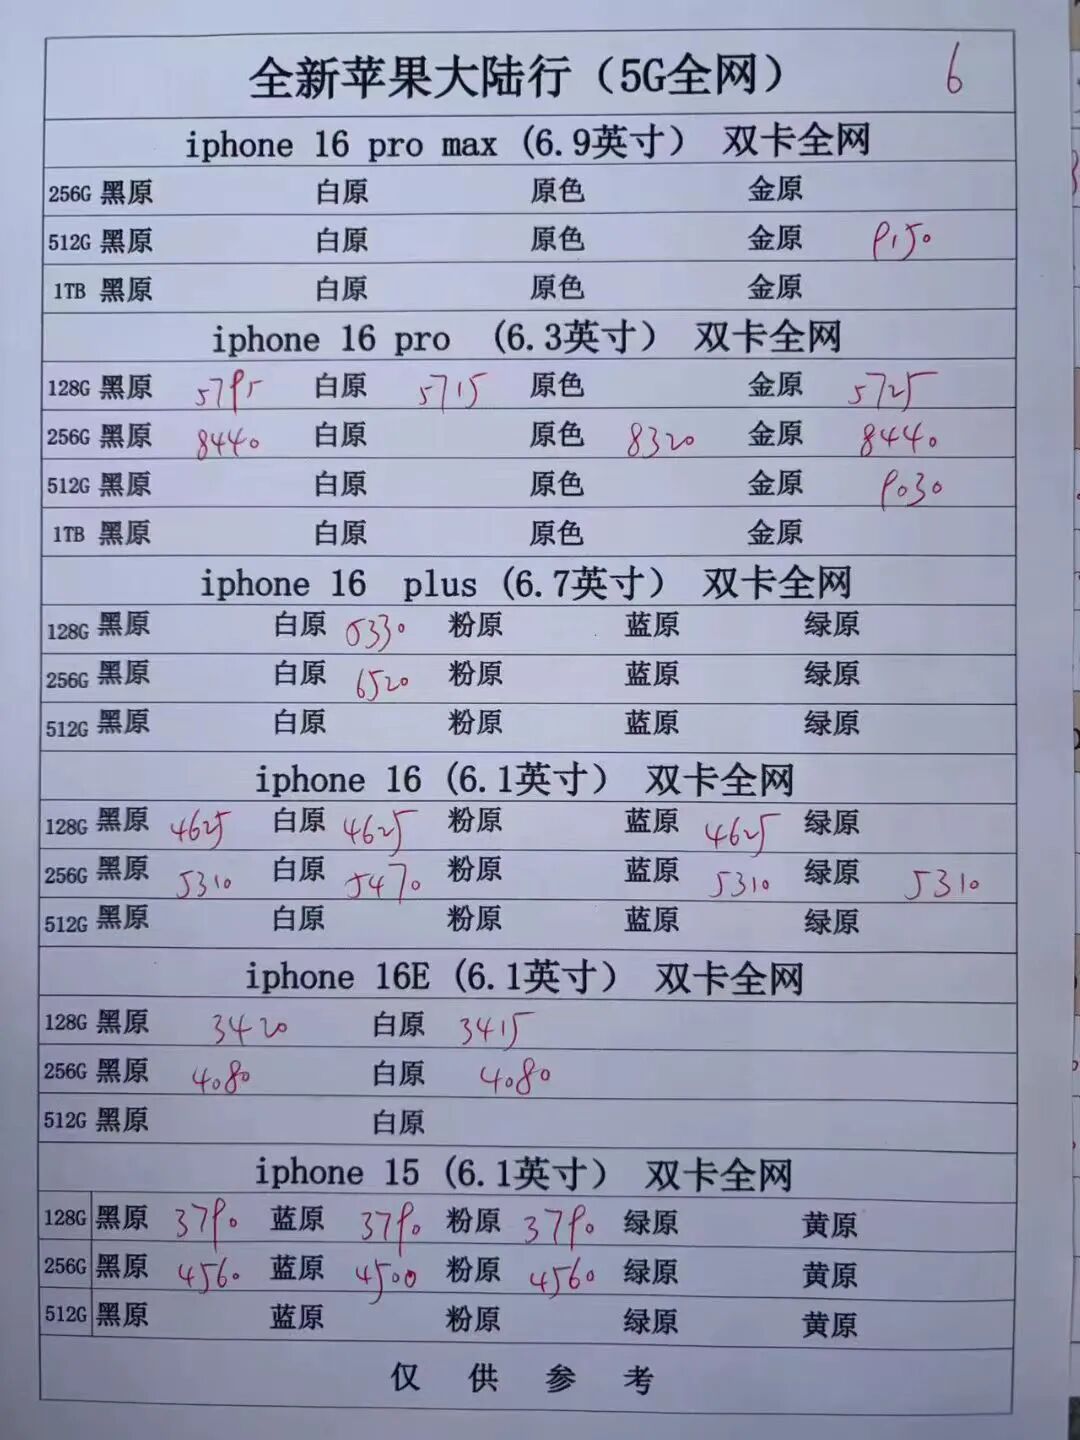 全新苹果大陆行（5G全网） 6
iphone 16 pro max (6.9英寸） 双卡全网
256G 黑原 白原 原色 金原
512G 黑原 白原 原色 金原 9150
1TB 黑原 白原 原色 金原
iphone 16 pro (6.3英寸） 双卡全网
128G 黑原 5795 白原 5715 原色 金原 5725
256G 黑原 8440 白原 原色 8320 金原 8440
512G 黑原 白原 原色 金原 9030
1TB 黑原 白原 原色 金原
iphone 16 plus (6.7英寸） 双卡全网
128G 黑原 白原 5330 粉原 蓝原 绿原
256G 黑原 白原 6520 粉原 蓝原 绿原
512G 黑原 白原 粉原 蓝原 绿原
iphone 16 (6.1英寸） 双卡全网
128G 黑原 4625 白原 4625 粉原 蓝原 4625 绿原
256G 黑原 5310 白原 5470 粉原 蓝原 5310 绿原 5310
512G 黑原 白原 粉原 蓝原 绿原
iphone 16E (6.1英寸） 双卡全网
128G 黑原 3420 白原 3415
256G 黑原 4080 白原 4080
512G 黑原 白原
iphone 15 (6.1英寸） 双卡全网
128G 黑原 3790 蓝原 3790 粉原 3790 绿原 黄原
256G 黑原 4560 蓝原 4500 粉原 4560 绿原 黄原
512G 黑原 蓝原 粉原 绿原 黄原
仅供参考